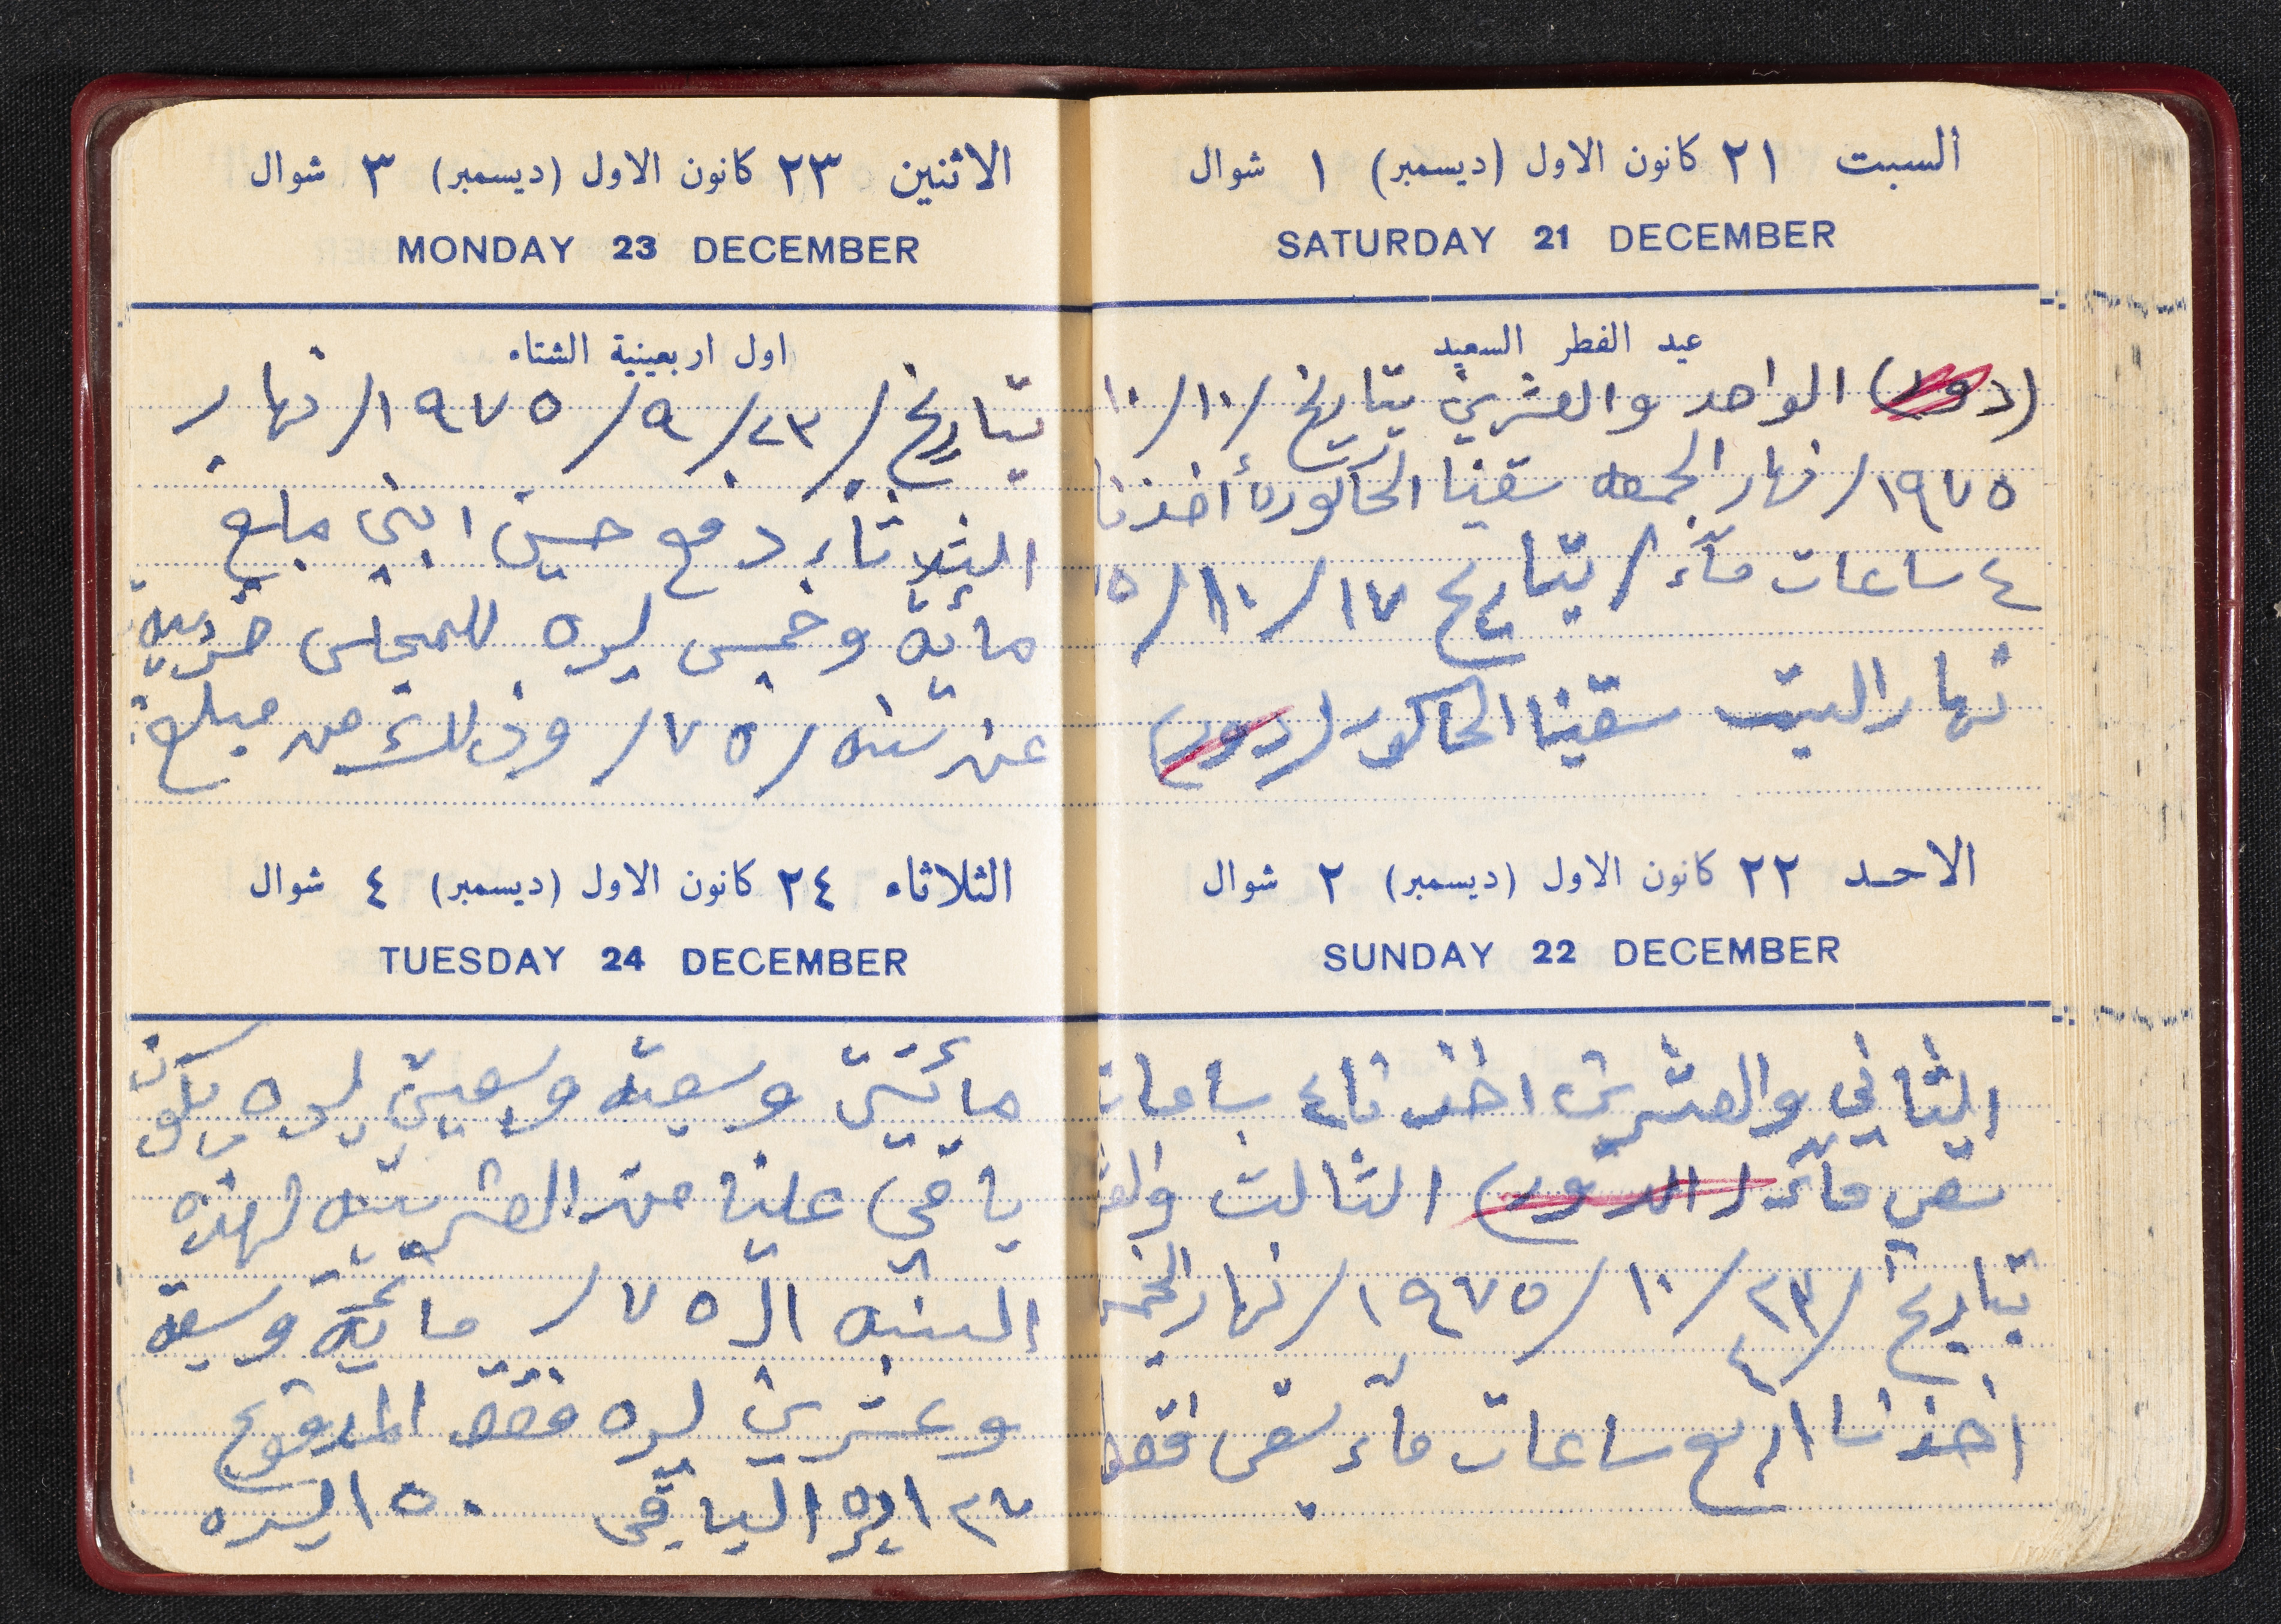 السبت ٢١ كانون الاول (ديسمبر) ١ شوال
SATURDAY 21 DECEMBER
عيد الفطر السعيد
(دور) الواحد والعشرين بتاريخ /١٠/١٠
١٩٧٥/ نهار الجمعه سقينا الحاكوره أخذنا
٤ ساعات مآء / بتاريخ ١٧/١٠/٧٥
نهار السبت سقينا الحاكور (دور)
الاحد ٢٢ كانون الاول (ديسمبر) ٢ شوال
SUNDAY 22 DECEMBER
الثاني والعشرين اخذنا ٤ ساعات
سقي مآء (الدور) الثالث
بتاريخ /٢٣/١٠/١٩٧٥/ نهار الخميس
٤
اخذنا اربع ساعات مآء سقي فقط
الاثنين ٢٣ كانون الاول (ديسمبر) ٣ شوال
MONDAY 23 DECEMBER
اول اربعينية الشتاء
بتاريخ /٢٣/٩/١٩٧٥/ نهار
الثلاثاء دفع حسين ابني مبلغ
مائة وخمسين ليره للمجلس ضريبة
عن سنه /٧٥/ وذلك من مبلغ
الثلاثاء ٢٤ كانون الاول (ديسمبر) ٤ شوال
TUESDAY 24 DECEMBER
مأتين وسبعة وسبعين ليره يكون
باقي علينا من الضريبه لهذه
السنه الـ ٧٥/ مائة وسبعة
وعشرين ليره فقط المدفوع
١٢٧ ليره الباقي ١٥٠ ليره